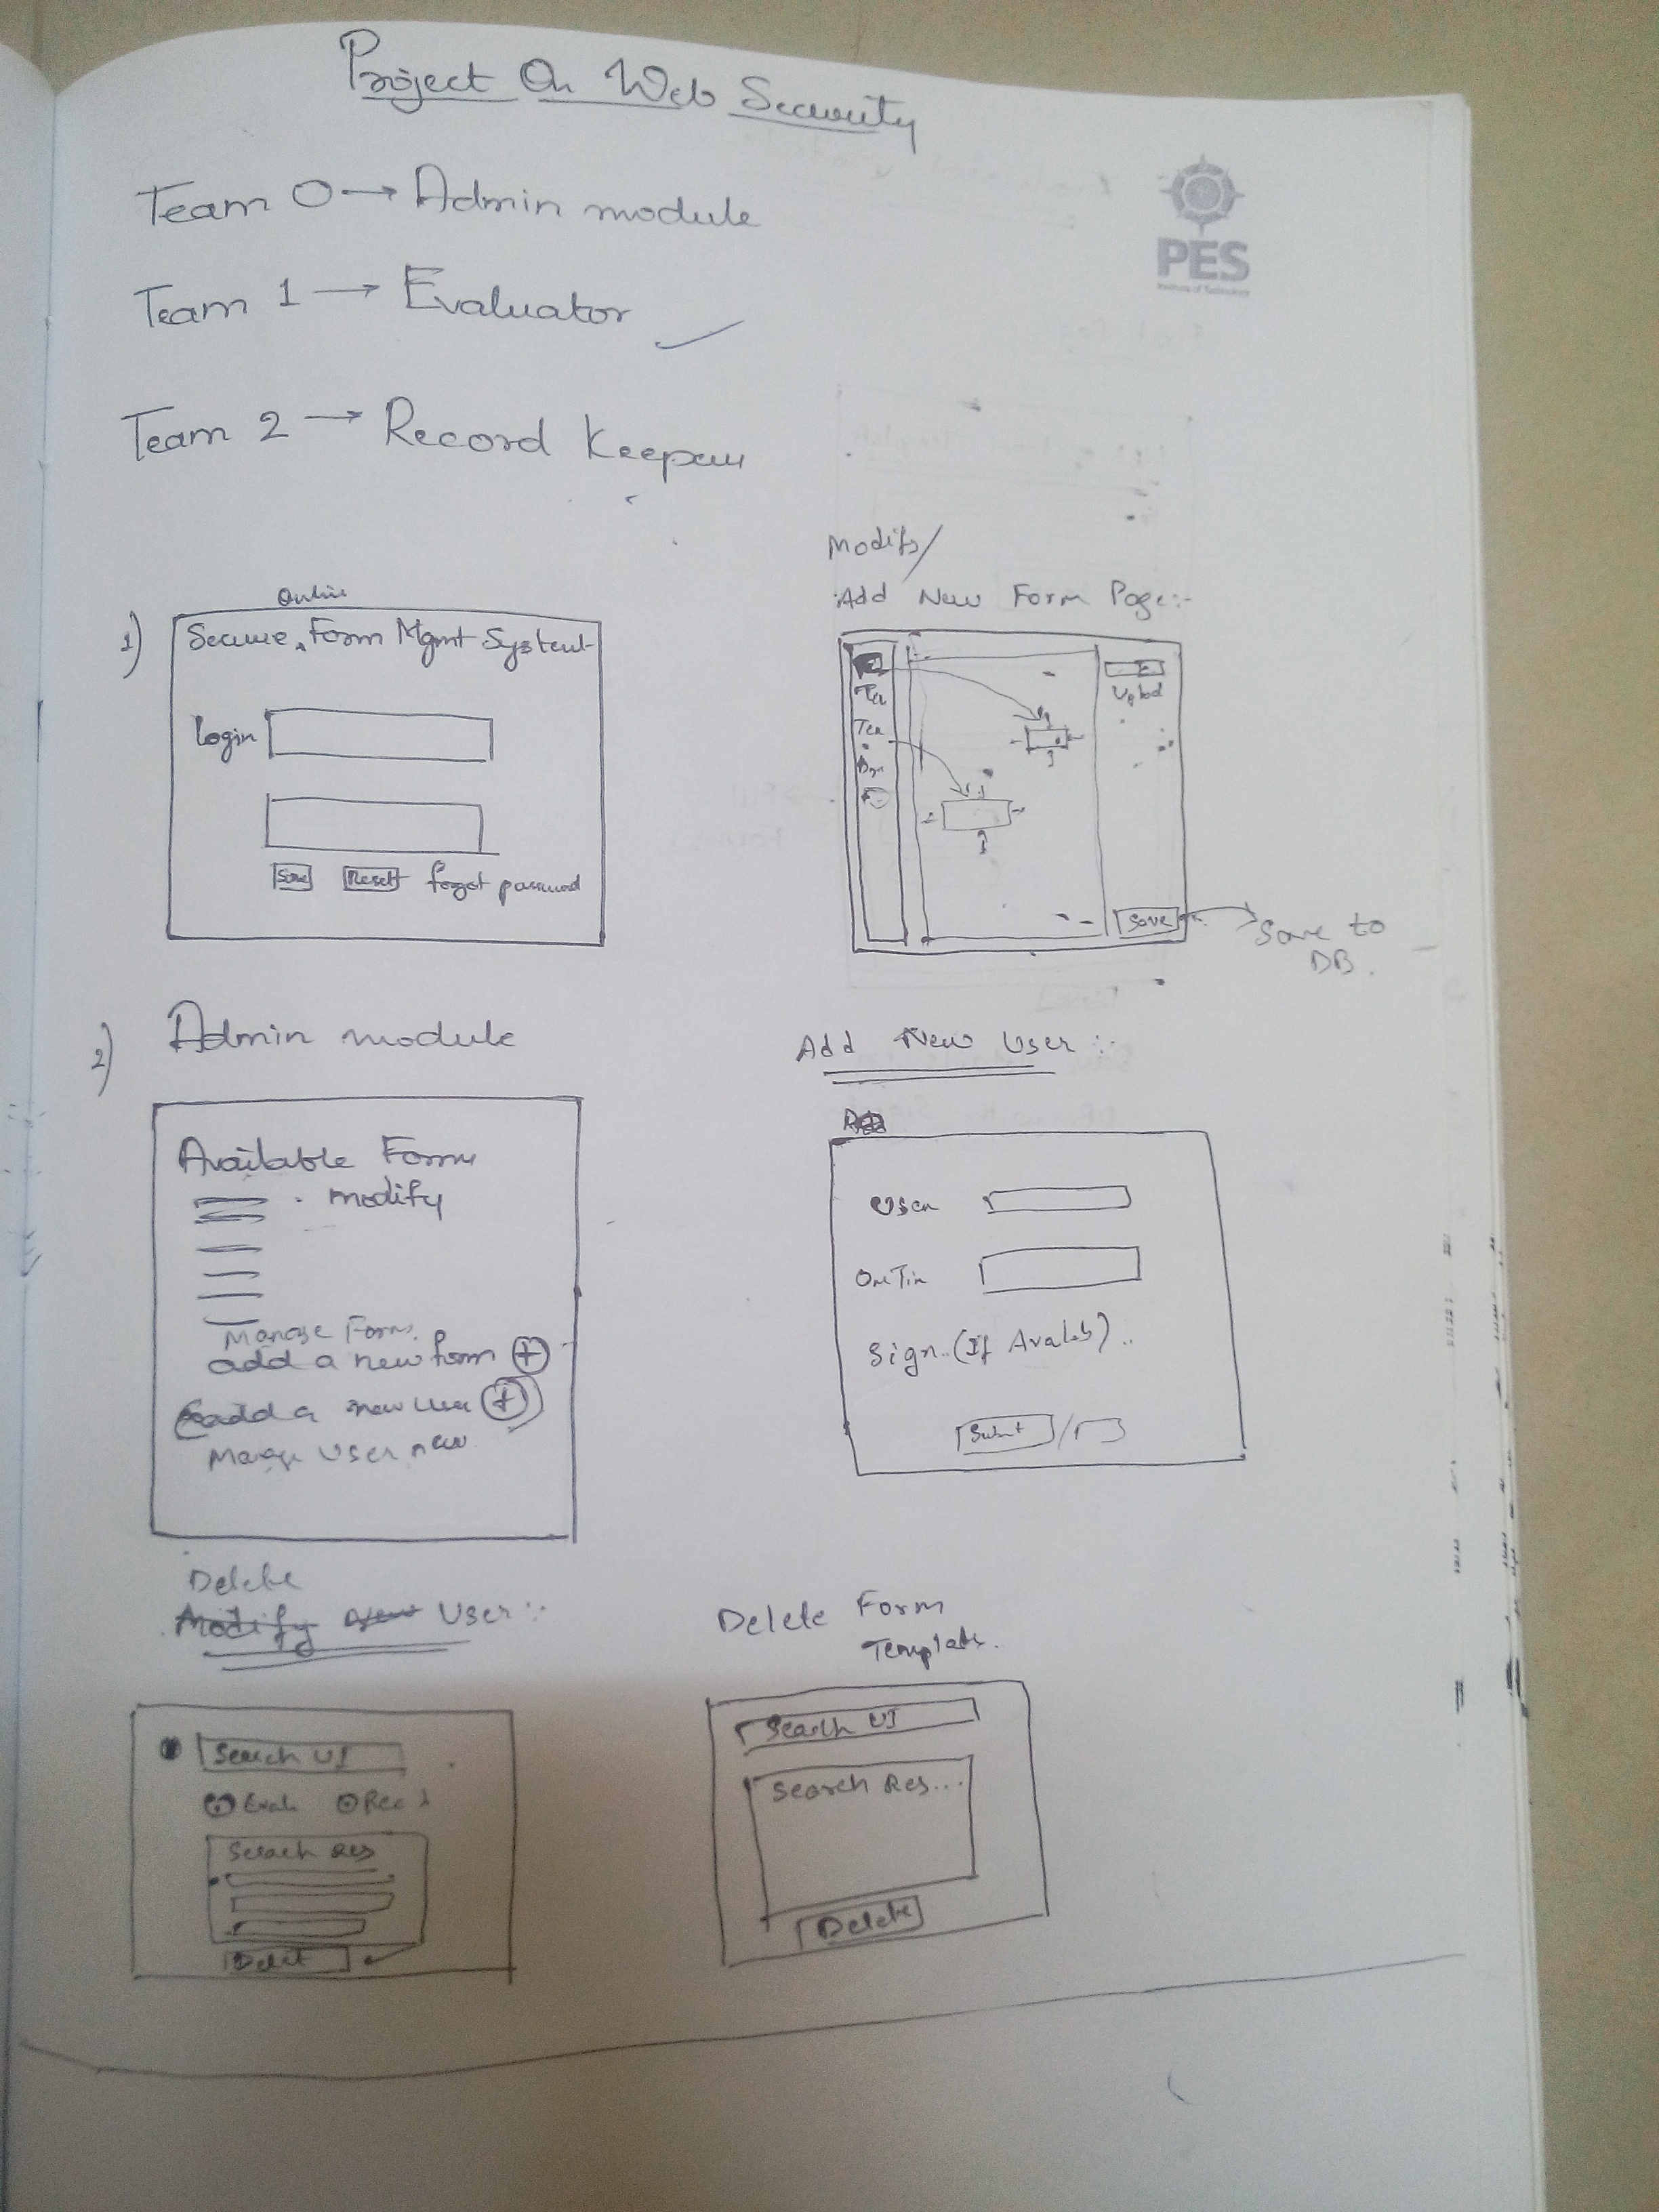 Project On Web Security
PES
Institute of Technology
Team 0 → Admin module
Team 1 → Evaluator
Team 2 → Record Keeper
1)
Online
Secure Form Mgmt System
Login
Save Reset forgot password
Modify/
Add New Form Page:-
Upload
Save
Save to
DB.
2) Admin module
Available Forms
modify
Manage Form.
add a new form +
add a new user +
Manage User new
Add New User :-
User
Sign..(If Avalab)..
Submt /
Delete
Modify New User :-
Search UI
Eval
Search Res
Delet
Delete Form
Template.
Search UI
Search Res...
Delete